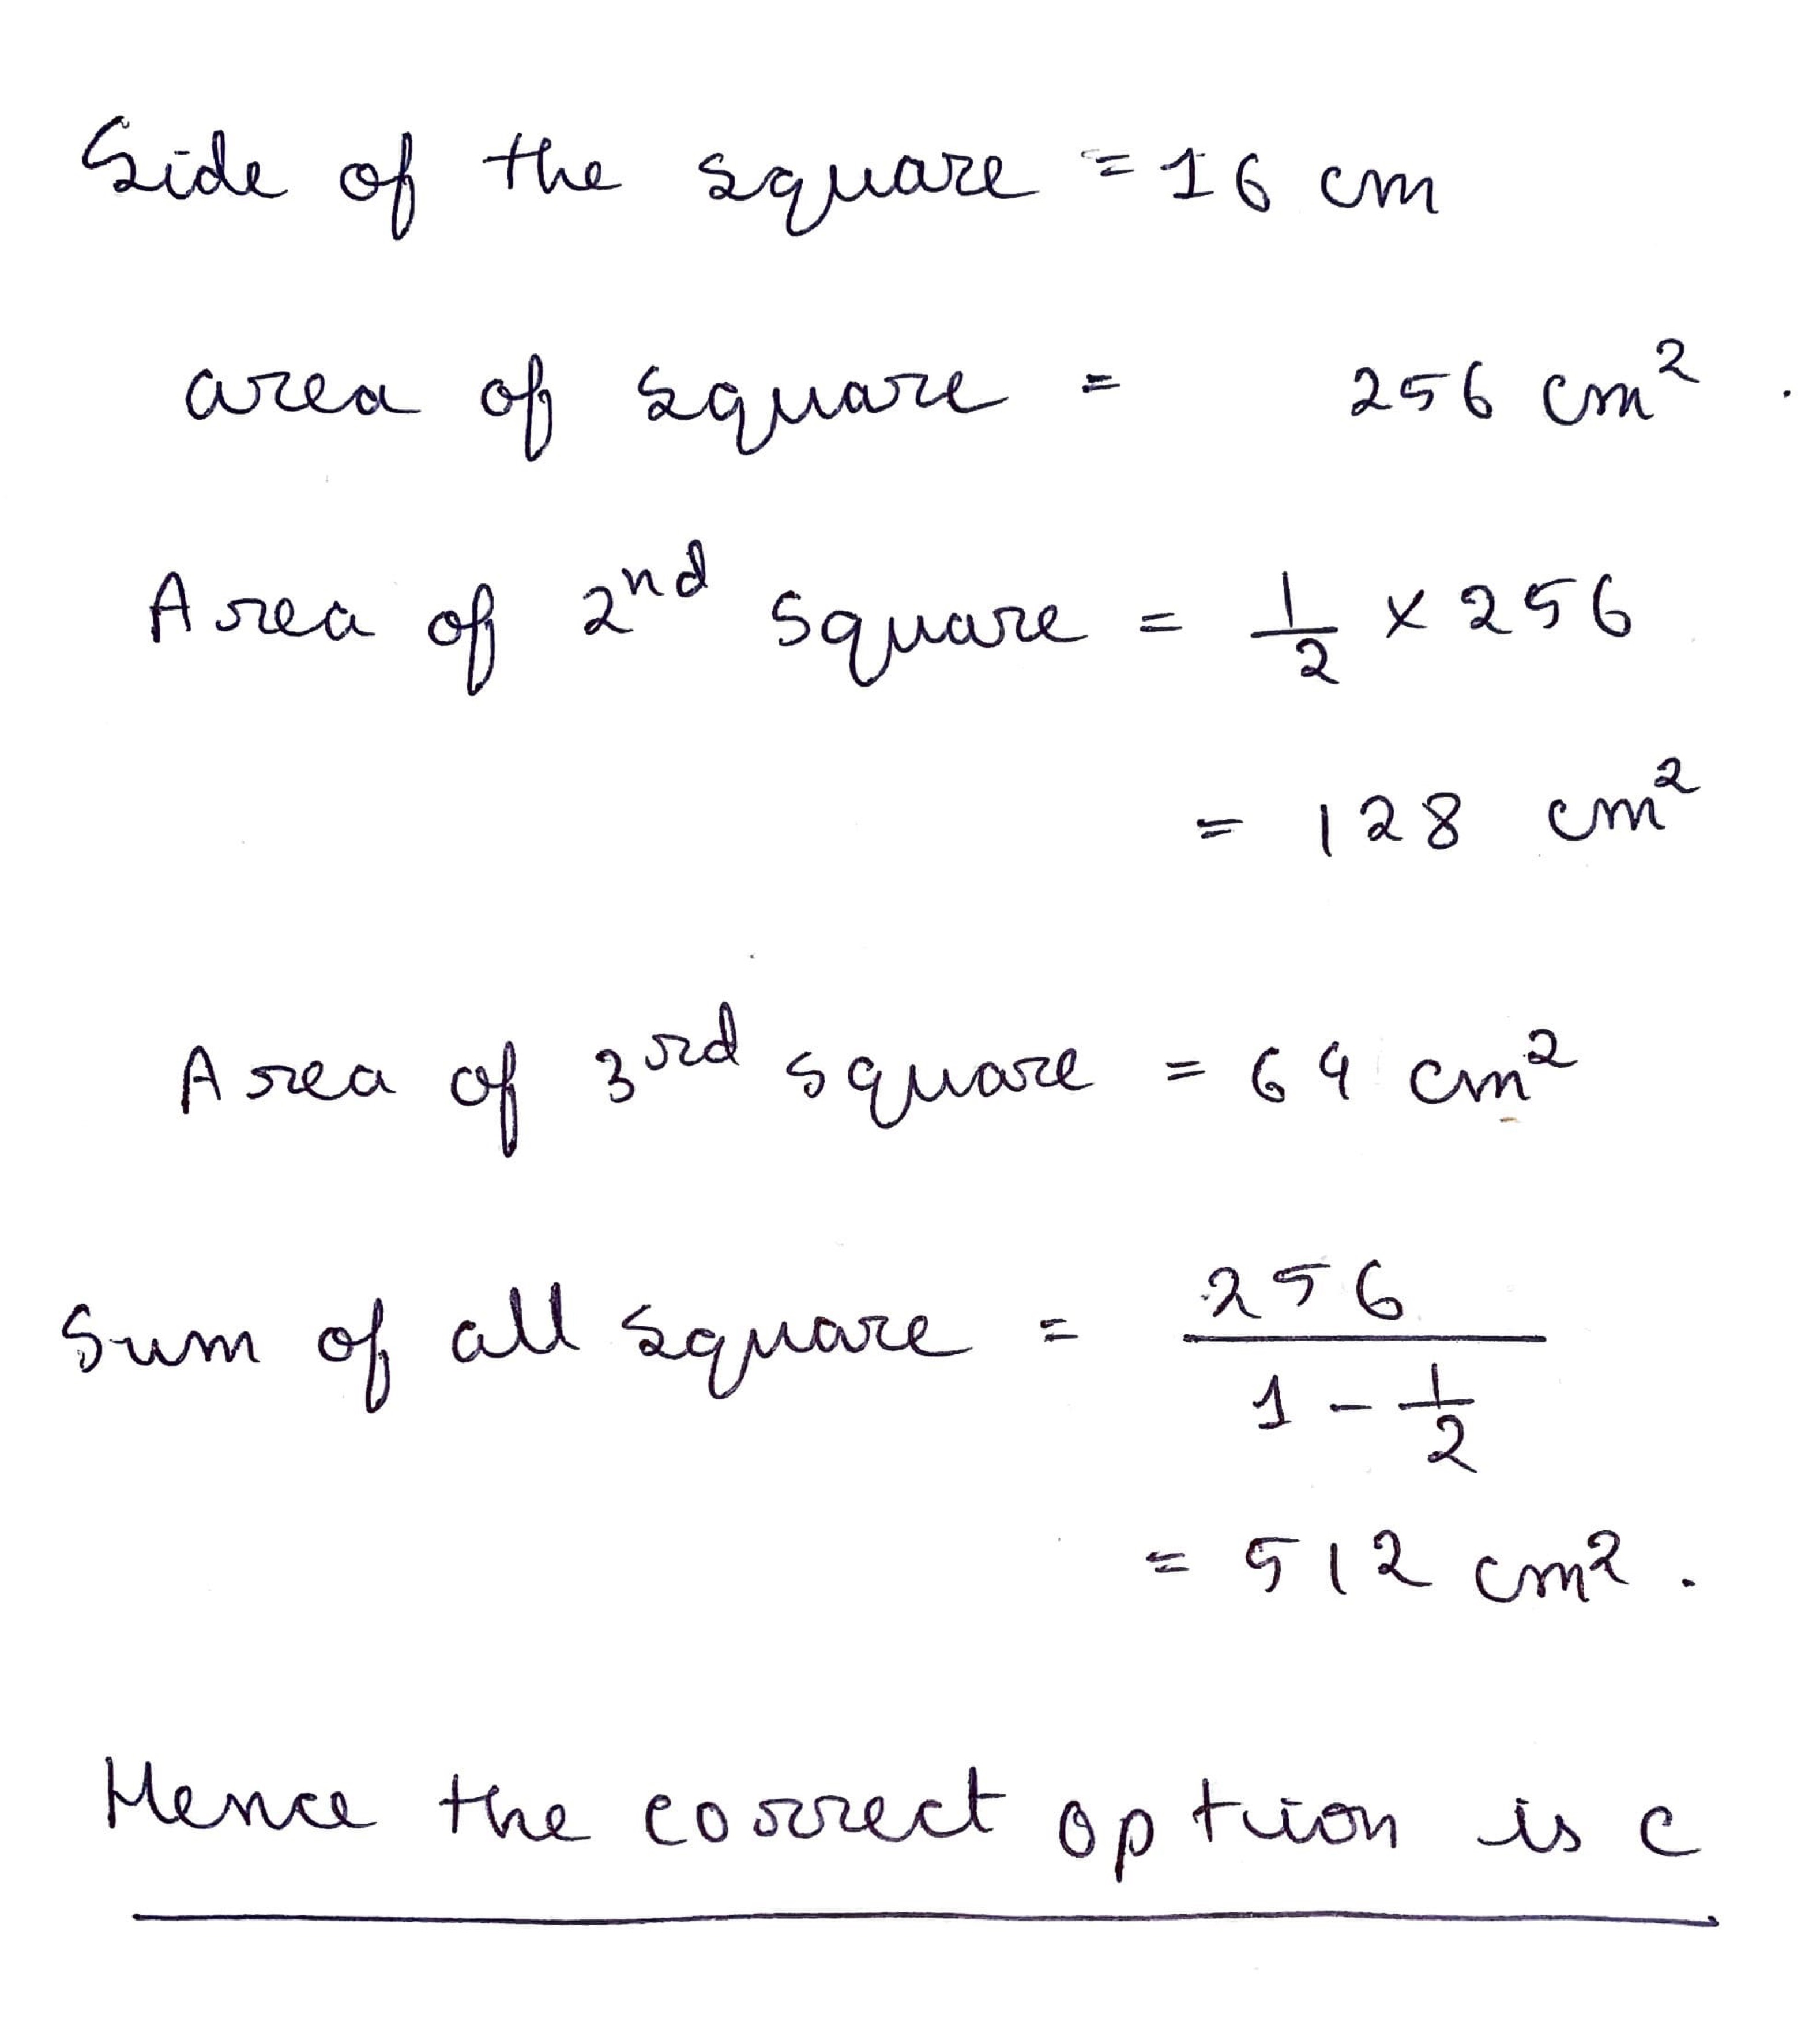 Side of the square = 16 cm
area of square = 256 cm².
Area of 2nd square = 1/2 x 256
= 128 cm²
Area of 3rd square = 64 cm²
Sum of all square = 256 / (1 - 1/2)
= 512 cm².
Hence the correct option is c